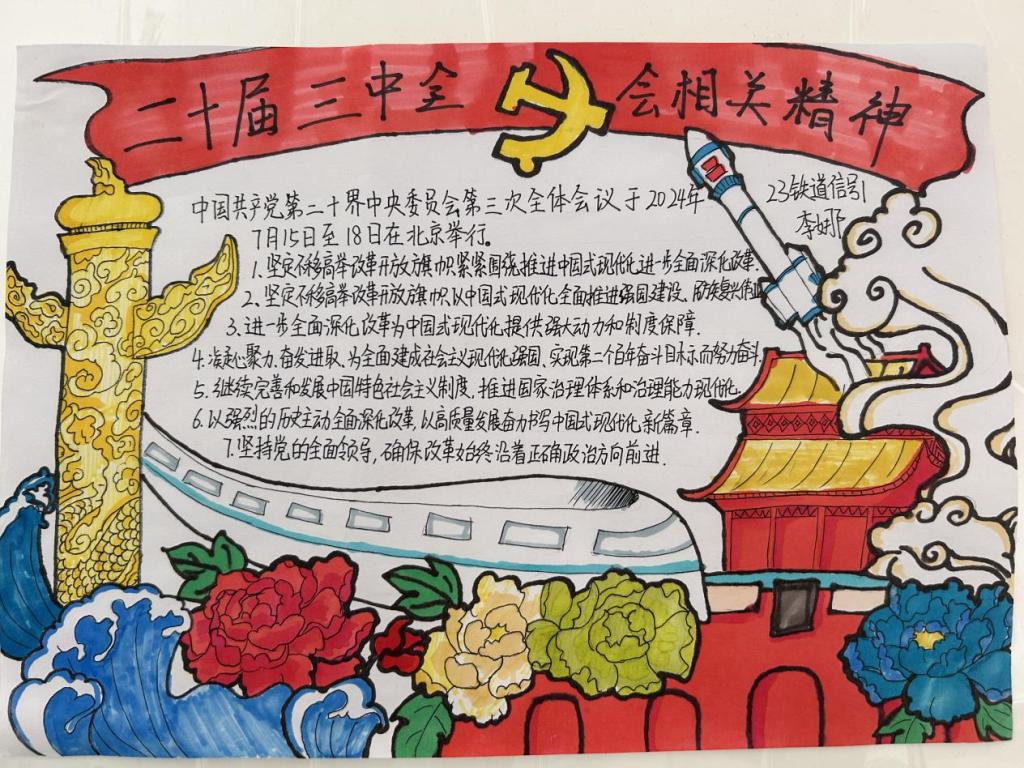 二十届三中全会相关精神
23铁道信号1
李娜
中国共产党第二十界中央委员会第三次全体会议于2024年
7月15日至18日在北京举行。
1.坚定不移高举改革开放旗帜紧紧围绕推进中国式现代化进一步全面深化改革.
2.坚定不移高举改革开放旗帜以中国式现代化全面推进强国建设、民族复兴伟业
3.进一步全面深化改革为中国式现代化提供强大动力和制度保障.
4.凝心聚力、奋发进取、为全面建成社会主义现代化强国、实现第二个百年奋斗目标而努力奋斗
5.继续完善和发展中国特色社会主义制度,推进国家治理体系和治理能力现代化.
6.以强烈的历史主动全面深化改革,以高质量发展奋力书写中国式现代化新篇章.
7.坚持党的全面领导,确保改革始终沿着正确政治方向前进.